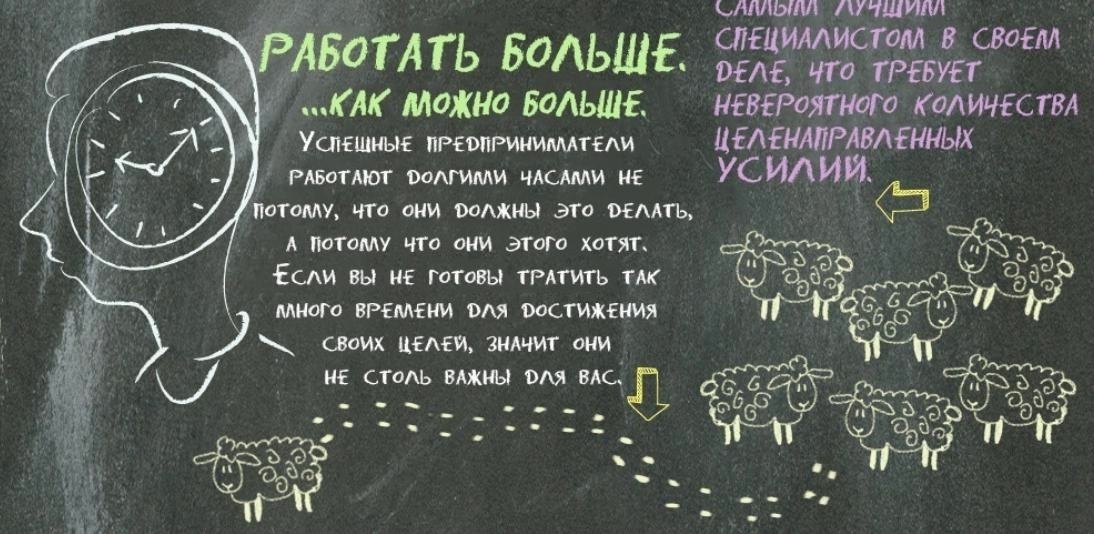 РАБОТАТЬ БОЛЬШЕ.
...КАК МОЖНО БОЛЬШЕ.
УСПЕШНЫЕ ПРЕДПРИНИМАТЕЛИ
РАБОТАЮТ ДОЛГИМИ ЧАСАМИ НЕ
ПОТОМУ, ЧТО ОНИ ДОЛЖНЫ ЭТО ДЕЛАТЬ,
А ПОТОМУ ЧТО ОНИ ЭТОГО ХОТЯТ.
ЕСЛИ ВЫ НЕ ГОТОВЫ ТРАТИТЬ ТАК
МНОГО ВРЕМЕНИ ДЛЯ ДОСТИЖЕНИЯ
СВОИХ ЦЕЛЕЙ, ЗНАЧИТ ОНИ
НЕ СТОЛЬ ВАЖНЫ ДЛЯ ВАС.
САМЫМ ЛУЧШИМ
СПЕЦИАЛИСТОМ В СВОЕМ
ДЕЛЕ, ЧТО ТРЕБУЕТ
НЕВЕРОЯТНОГО КОЛИЧЕСТВА
ЦЕЛЕНАПРАВЛЕННЫХ
УСИЛИЙ.